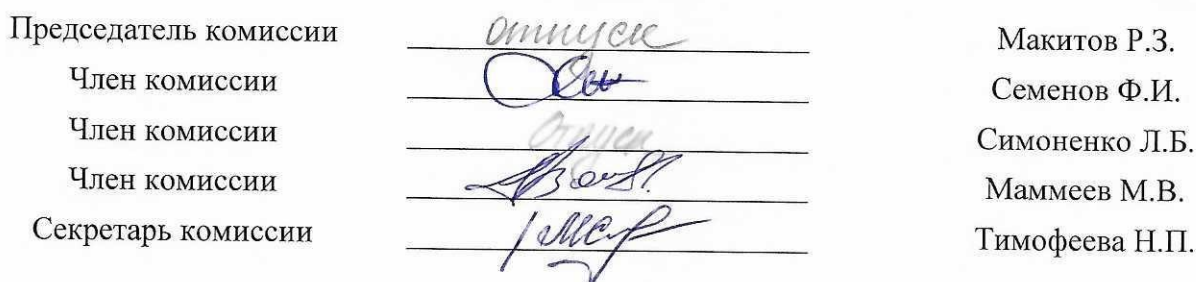 Председатель комиссии отпуск Макитов Р.З.
Член комиссии Семенов Ф.И.
Член комиссии Отпуск Симоненко Л.Б.
Член комиссии Маммеев М.В.
Секретарь комиссии Тимофеева Н.П.